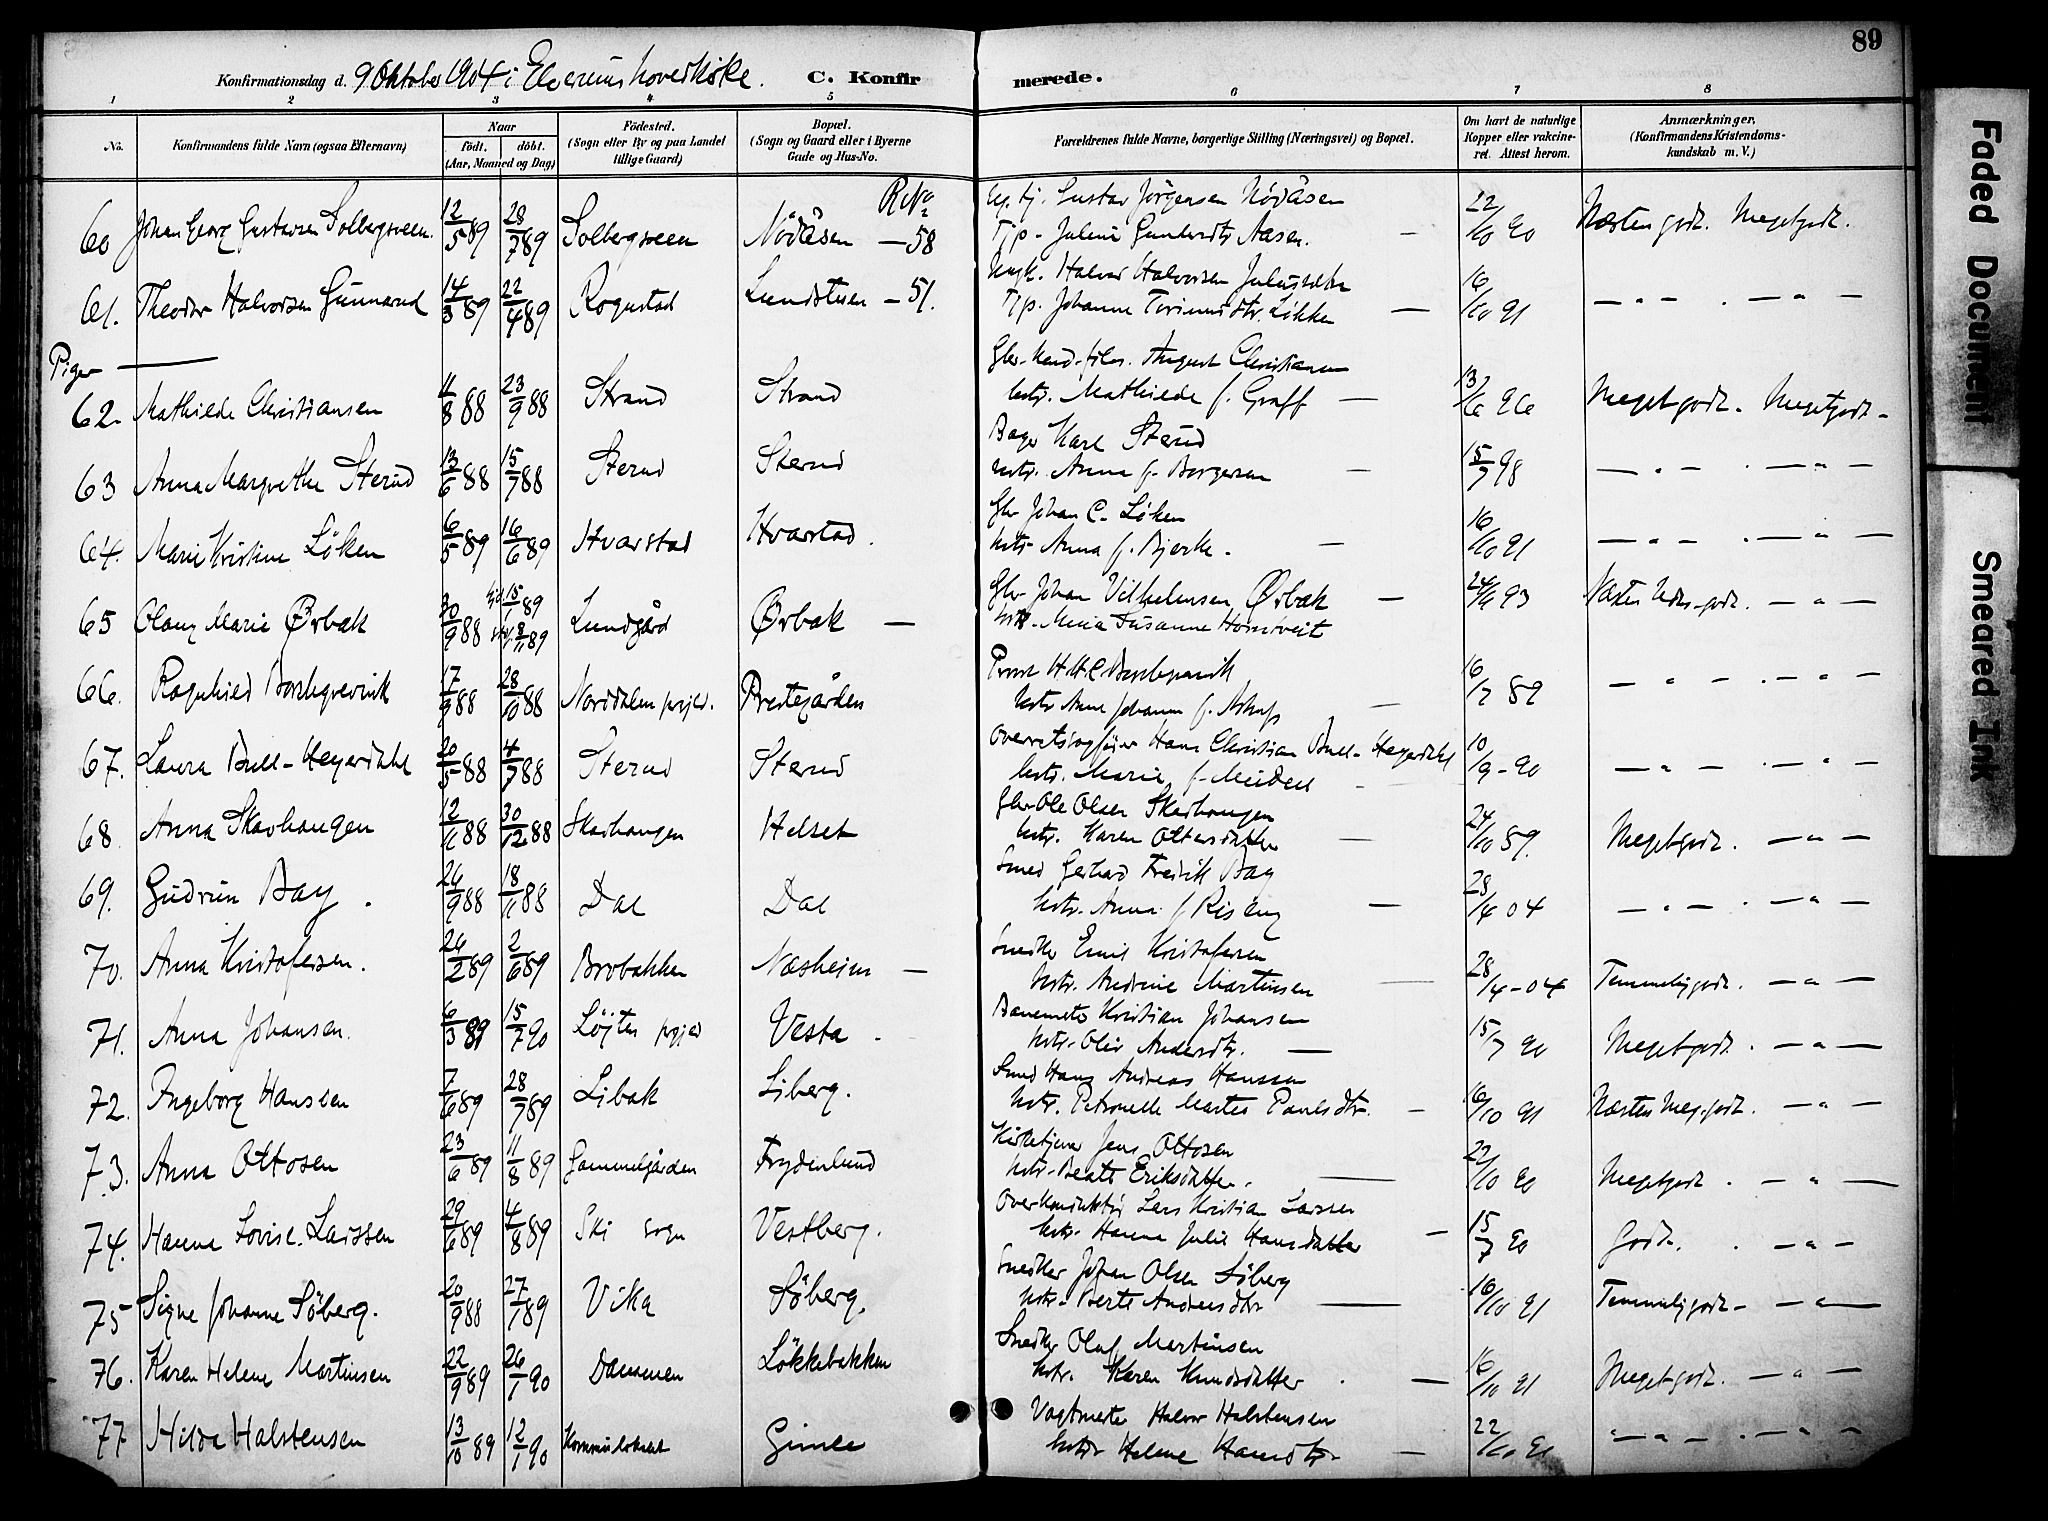 89
Konfirmationsdag d. 9 Oktober 1904 i Elverums hovedkirke. C. Konfirmerede.
1 2 3 4 5 6 7 8
No. Konfirmandens fulde Navn (ogsaa Efternavn) Naar født. døbt. (Aar, Maaned og Dag) Fødested. (Sogn eller By og paa Landet tillige Gaard) Bopæl. (Sogn og Gaard eller i Byerne Gade og Hus-No. Forældrenes fulde Navne, borgerlige Stilling (Næringsvei) og Bopæl. Om havt de naturlige Kopper eller vaccineret. Attest herom. Anmærkninger, (Konfirmandens Kristendomskundskab m. V.)
60 Johan Georg Gustavsen Solbergsveen. 12/5 89 28/7 89 Solbergsveen Nödåsen — 58 Gustav Jörgensen Nödåsen
Tjp. Juline Gundersdtr Aasen. — 22/10 90 Næsten godt. Meget godt.
61. Theodor Halvorsen Gunnarud 14/3 89 22/4 89 Rogstad Lundstuen — 51. Ungk. Halvor Halvorsen Julussæter
Tjp. Johanne Lökken — 16/10 91 — " — . — " —
Piger —
62. Mathilde Christiansen 11/8 88 23/9 88 Strand Strand August Christiansen
hstr. Mathilde f. Graff — 13/6 96 Meget godt. Meget godt.
63 Anna Margrethe Sterud 13/6 88 15/7 88 Sterud Sterud Bager Karl Sterud
hstr. Anna f. Borgersen — 15/7 98 — " — . — " —
64. Marie Kristine Löken 6/5 89 16/6 89 Hvarstad Hvarstad. Gbr Johan C. Löken
hstr. Anna f. Bjerke. — 16/10 91 — " — . — " —
65 Olang Marie Ørbæk 30/9 88 15/1 89 Lundgård Ørbæk — Gbr. Johan Vilhelmsen Ørbæk —
hstr. Susanne Homtveit 24/6 93 — " —
66. Ragnhild Borchgrevink 17/9 88 28/10 88 Norddalen prgjld. Prestegården Provst H.H.C. Borchgrevink
hstr Anne Johanne f. — 16/7 89 — " — . — " —
67. Laura Bull-Heyerdahl 20/5 88 4/7 88 Sterud Sterud Overretssagfører Hans Christian Bull-Heyerdahl
hstr. Marie, f. Meidell 10/9 - 90 — " — . — " —
68. Anna Skavhaugen 12/11 88 30/12 88 Skavhaugen Helset Gbr. Ole Olsen Skavhaugen
hstr. Karen Ottersdatter — 24/10 89. Meget godt. — " —
69. Gudrun Bay. 26/9 88 18/11 88 Dal Dal Smed Gerhard Fredrik Bay
hstr. Anna f. Rising — 28/4 04 — " — . — " —
70. Anna Kristofersen. 26/2 89 2/6 89 Brobakken Næsheim — Snedker Emil Kristofersen
hstr. Andrine Martinsen — 28/4 - 04 Temmelig godt. — " —
71. Anna Johansen. 6/3 89 15/7 90 Löjten prgjld Vesta. Banemester Kristian Johansen
hstr. Oliv Andersdtr. — 15/7 90 Meget godt. — " —
72. Ingeborg Hanssen 7/6 89 28/7 89 Libak Liberg. Smed Hans Andreas Hanssen
hstr. Petronelle Martea Paulsdtr. — 16/10 91 Næsten meg. godt. — " —
73. Anna Ottosen 23/6 89 11/8 89 Gammelgården Frydenlund Kirketjener Jens Ottosen
hstr. Beate Eriksdatter. — 22/10 90 Meget godt. — " —
74. Hanna Lovise Larssen 29/6 89 4/8 89 Ski sogn Vestberg. Overkonduktör Lars Kristian Larssen
hstr. Hanna Julie Hansdatter — 15/7 90 Godt. . — " —
75 Signe Johanne Söberg. 20/9 88 27/7 89 Vika Söberg. Snedker Johan Olsen Söberg
hstr. Berte Andersdtr — 16/10 91 Temmelig godt — " —
76. Karen Helene Martinsen 22/9 89 26/1 90 Dammen Lökkebakken Snedker Olaf Martinsen
hstr. Karen Knudsdatter. — 16/10 91 Meget godt. — " —
77 Hilda Halstensen 13/10 89 12/1 90 Kommunelokalet Gimle Vagtmester Halvor Halstensen
hstr Helene Hansdtr — 22/10 90 — " — . — " —
Faded Document
Smeared Ink